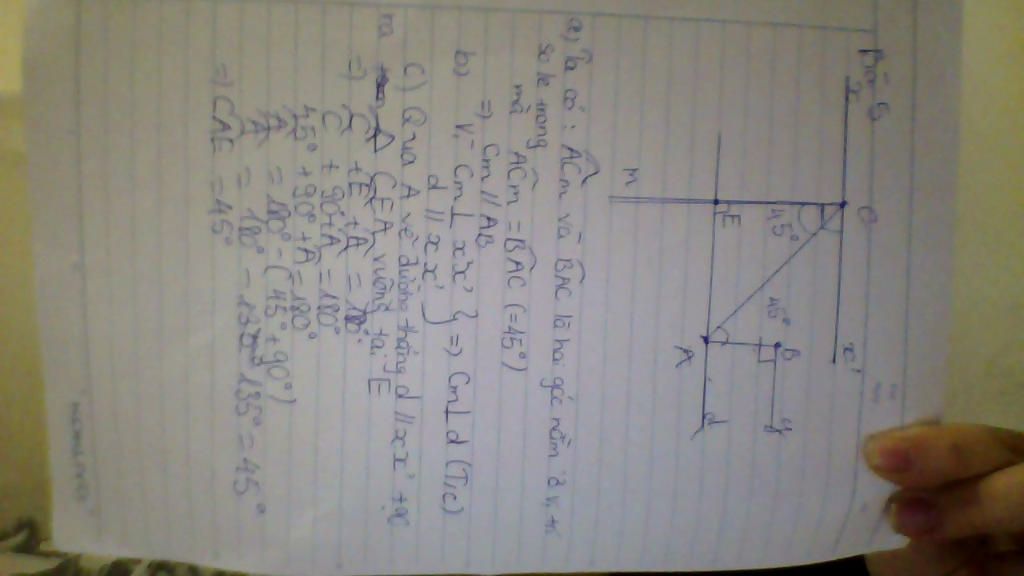 Bài 5
x
C
x'
45°
45°
B
y
E
A
d
m
a) Ta có: ACm và BAC là hai góc nằm ở vị trí
so le trong
mà ACm = BAC (=45°)
=> Cm // AB
b) Vì Cm ⊥ xx'
d // xx' } => Cm ⊥ d (T/c)
c) Qua A vẽ đường thẳng d // xx' tạo
ra Δ CEA vuông tại E
=> C + E + A = 180°
C + 90° + A = 180°
45° + 90° + A = 180°
A = 180° - (45° + 90°)
A = 180° - 135° = 45°
=> CAE = 45°